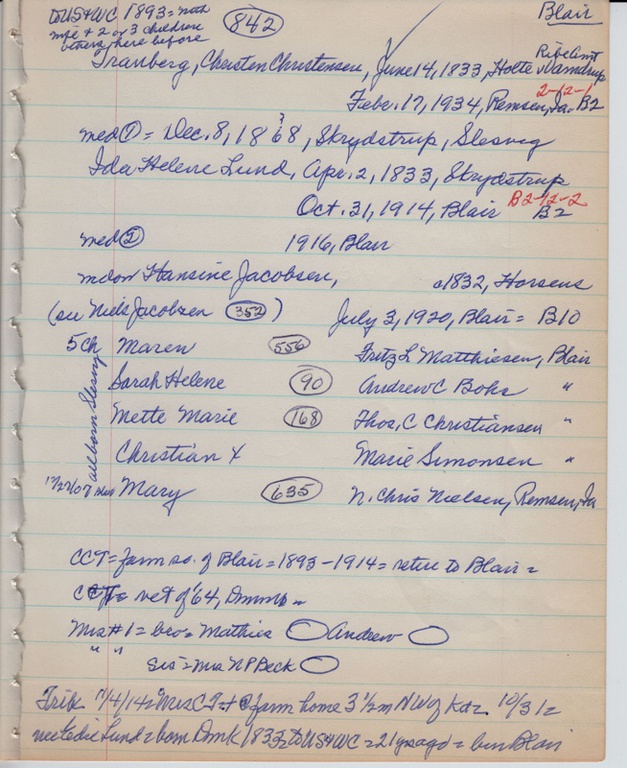 to US+WC 1893 = with
wife + 2 or 3 children
others here before
842
Blair
Tranberg, Christen Christensen, June 14, 1833, Holte, Vamdrup
Ribe Amt
2-12-1
Febr. 17, 1934, Remsen, Ia. B2
med ① = Dec. 8, 1868, Skrydstrup, Slesvig
?
Ida Helene Lund, Apr. 2, 1833, Skrydstrup
Oct. 31, 1914, Blair B2-12-2
B2
med ② 1916, Blair
Hansine Jacobsen, c1832, Horsens
(see Niels Jacobsen 352) July 3, 1920, Blair = B10
5 ch Maren 556 Fritz L Matthiesen, Blair
all born Slesvig
Sarah Helene 90 Andrew C Bohs "
Mette Marie 168 Thos. C Christiansen "
Christian X Marie Simonsen "
Mary 635 N. Chris Nielsen, Remsen, Ia
CCT = farm so. of Blair = 1893-1914 = retire to Blair =
CCT = vet of '64,
Mrs #1 = bro = Mathies Andrew
" " sis = Mrs N P Beck
Trib 11/4/14 = Mrs CT + @ farm home 3 1/2 m NW of Ka = 10/31 =
nee Lund = born Dmk 1833 = to US+WC = 21 yrs ago = bur Blair